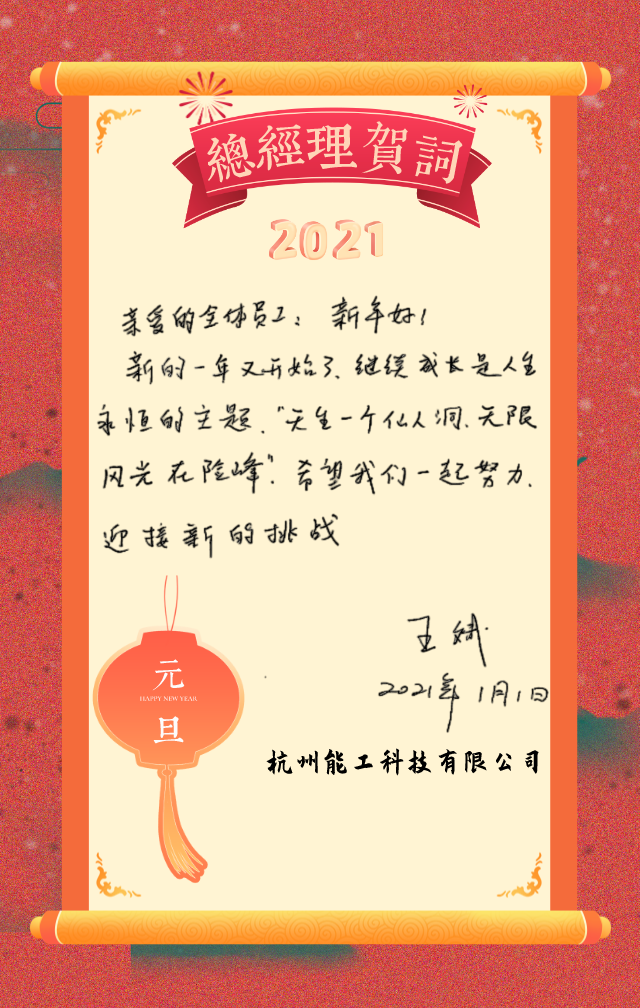 總經理賀詞
2021
亲爱的全体员工：新年好！
新的一年又开始了、继续成长是人生
永恒的主题、“天生一个仙人洞、无限
风光在险峰”。希望我们一起努力、
迎接新的挑战
王斌
2021年1月1日
元
HAPPY NEW YEAR
旦
杭州能工科技有限公司